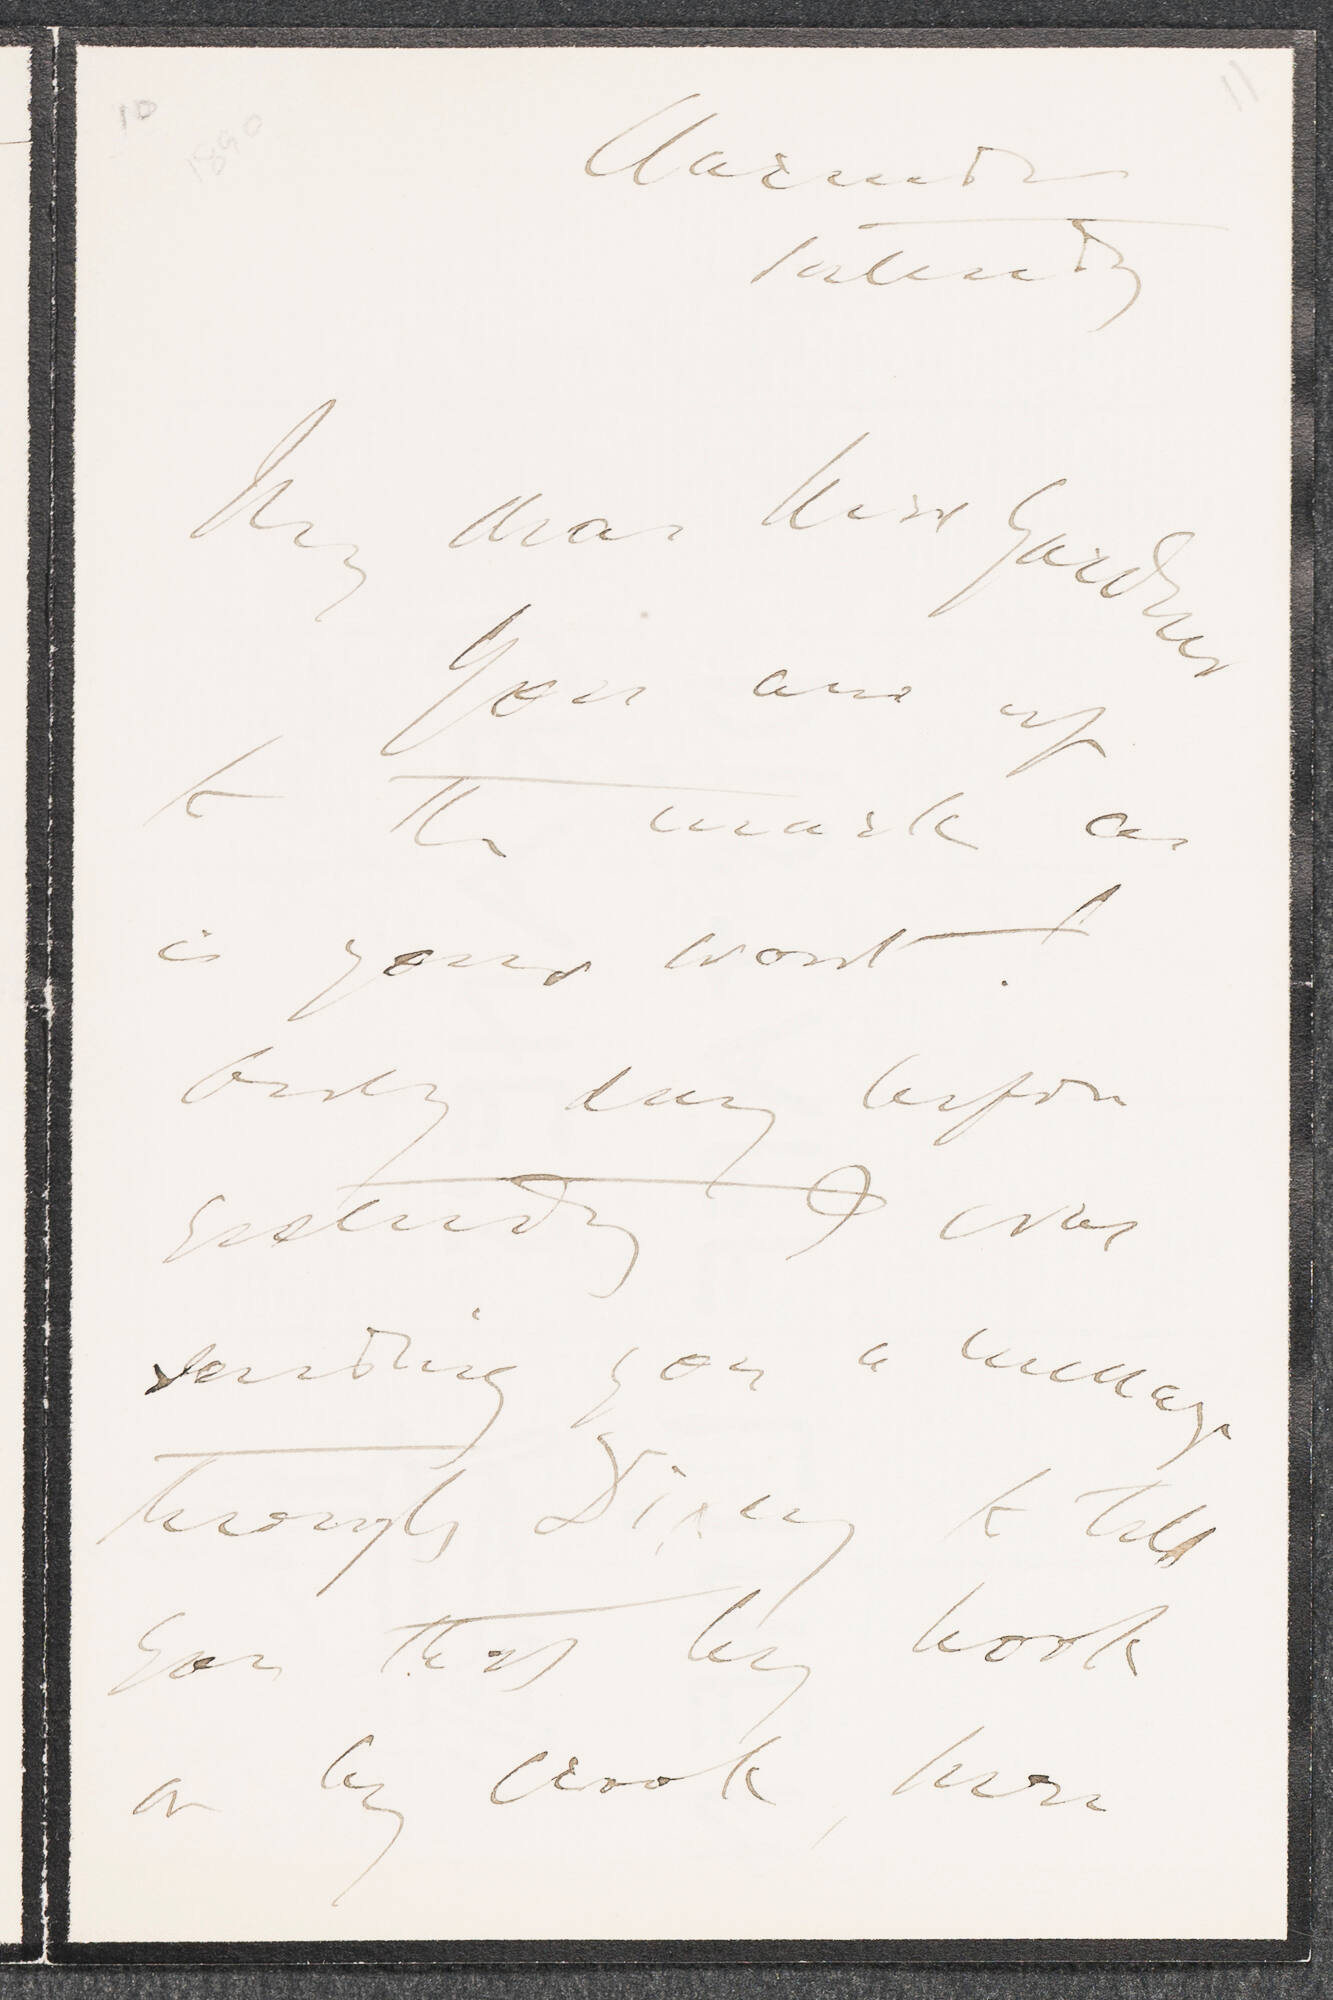 10
1890
11
Saturday
My dear Mrs Gardner
You are up
to the mark as
is your wont!
Only day before
yesterday I was
sending you a message
through Dixey to tell
you that by hook
or by crook, here